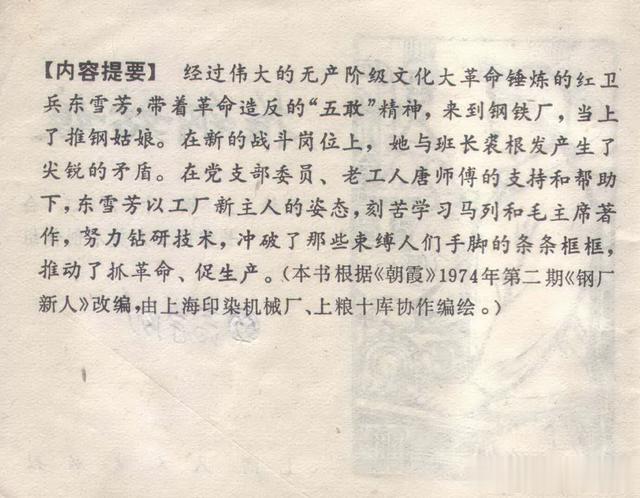 【内容提要】 经过伟大的无产阶级文化大革命锤炼的红卫
兵东雪芳，带着革命造反的“五敢”精神，来到钢铁厂，当上
了推钢姑娘。在新的战斗岗位上，她与班长裘根发产生了
尖锐的矛盾。在党支部委员、老工人唐师傅的支持和帮助
下，东雪芳以工厂新主人的姿态，刻苦学习马列和毛主席著
作，努力钻研技术，冲破了那些束缚人们手脚的条条框框，
推动了抓革命、促生产。（本书根据《朝霞》1974年第二期《钢厂
新人》改编，由上海印染机械厂、上粮十库协作编绘。）